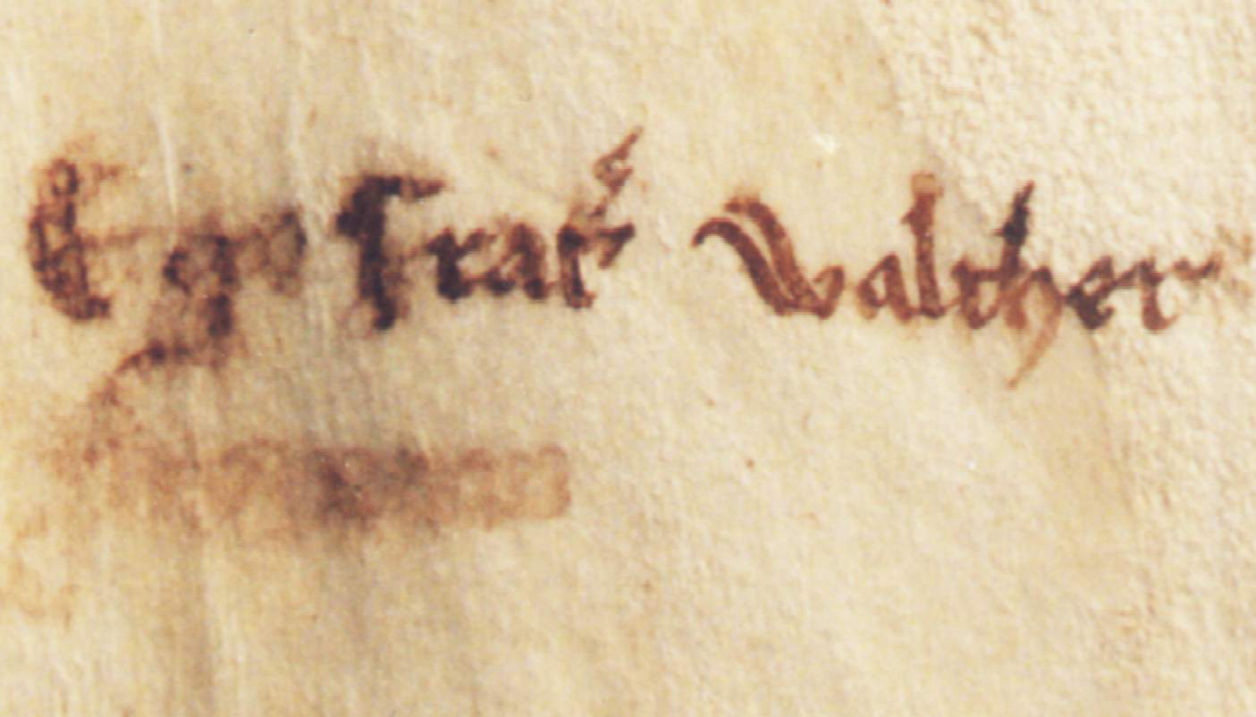 Ego frat̃ Walther